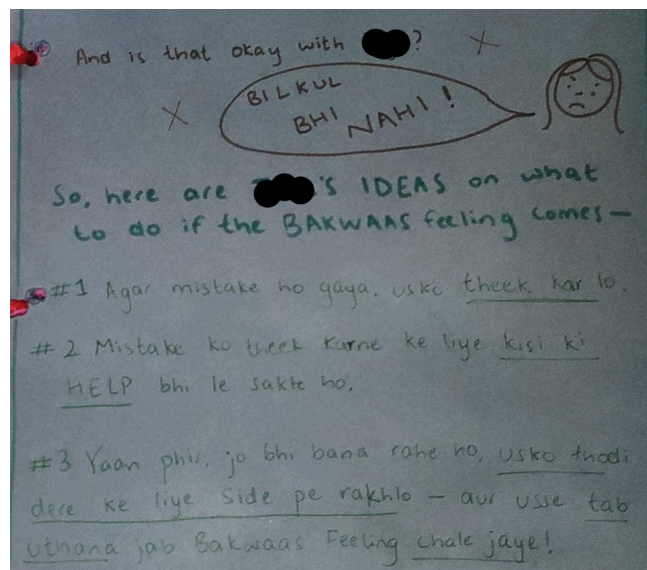 And is that okay with ?
BILKUL
BHI NAHI!
So, here are 'S IDEAS on what
to do if the BAKWAAS feeling comes-
#1 Agar mistake ho gaya, usko theek kar lo.
# 2 Mistake ko theek karne ke liye kisi ki
HELP bhi le sakte ho.
#3 Yaan phir, jo bhi bana rahe ho, usko thodi
dere ke liye side pe rakhlo - aur usse tab
uthana jab Bakwaas Feeling chale jaye!